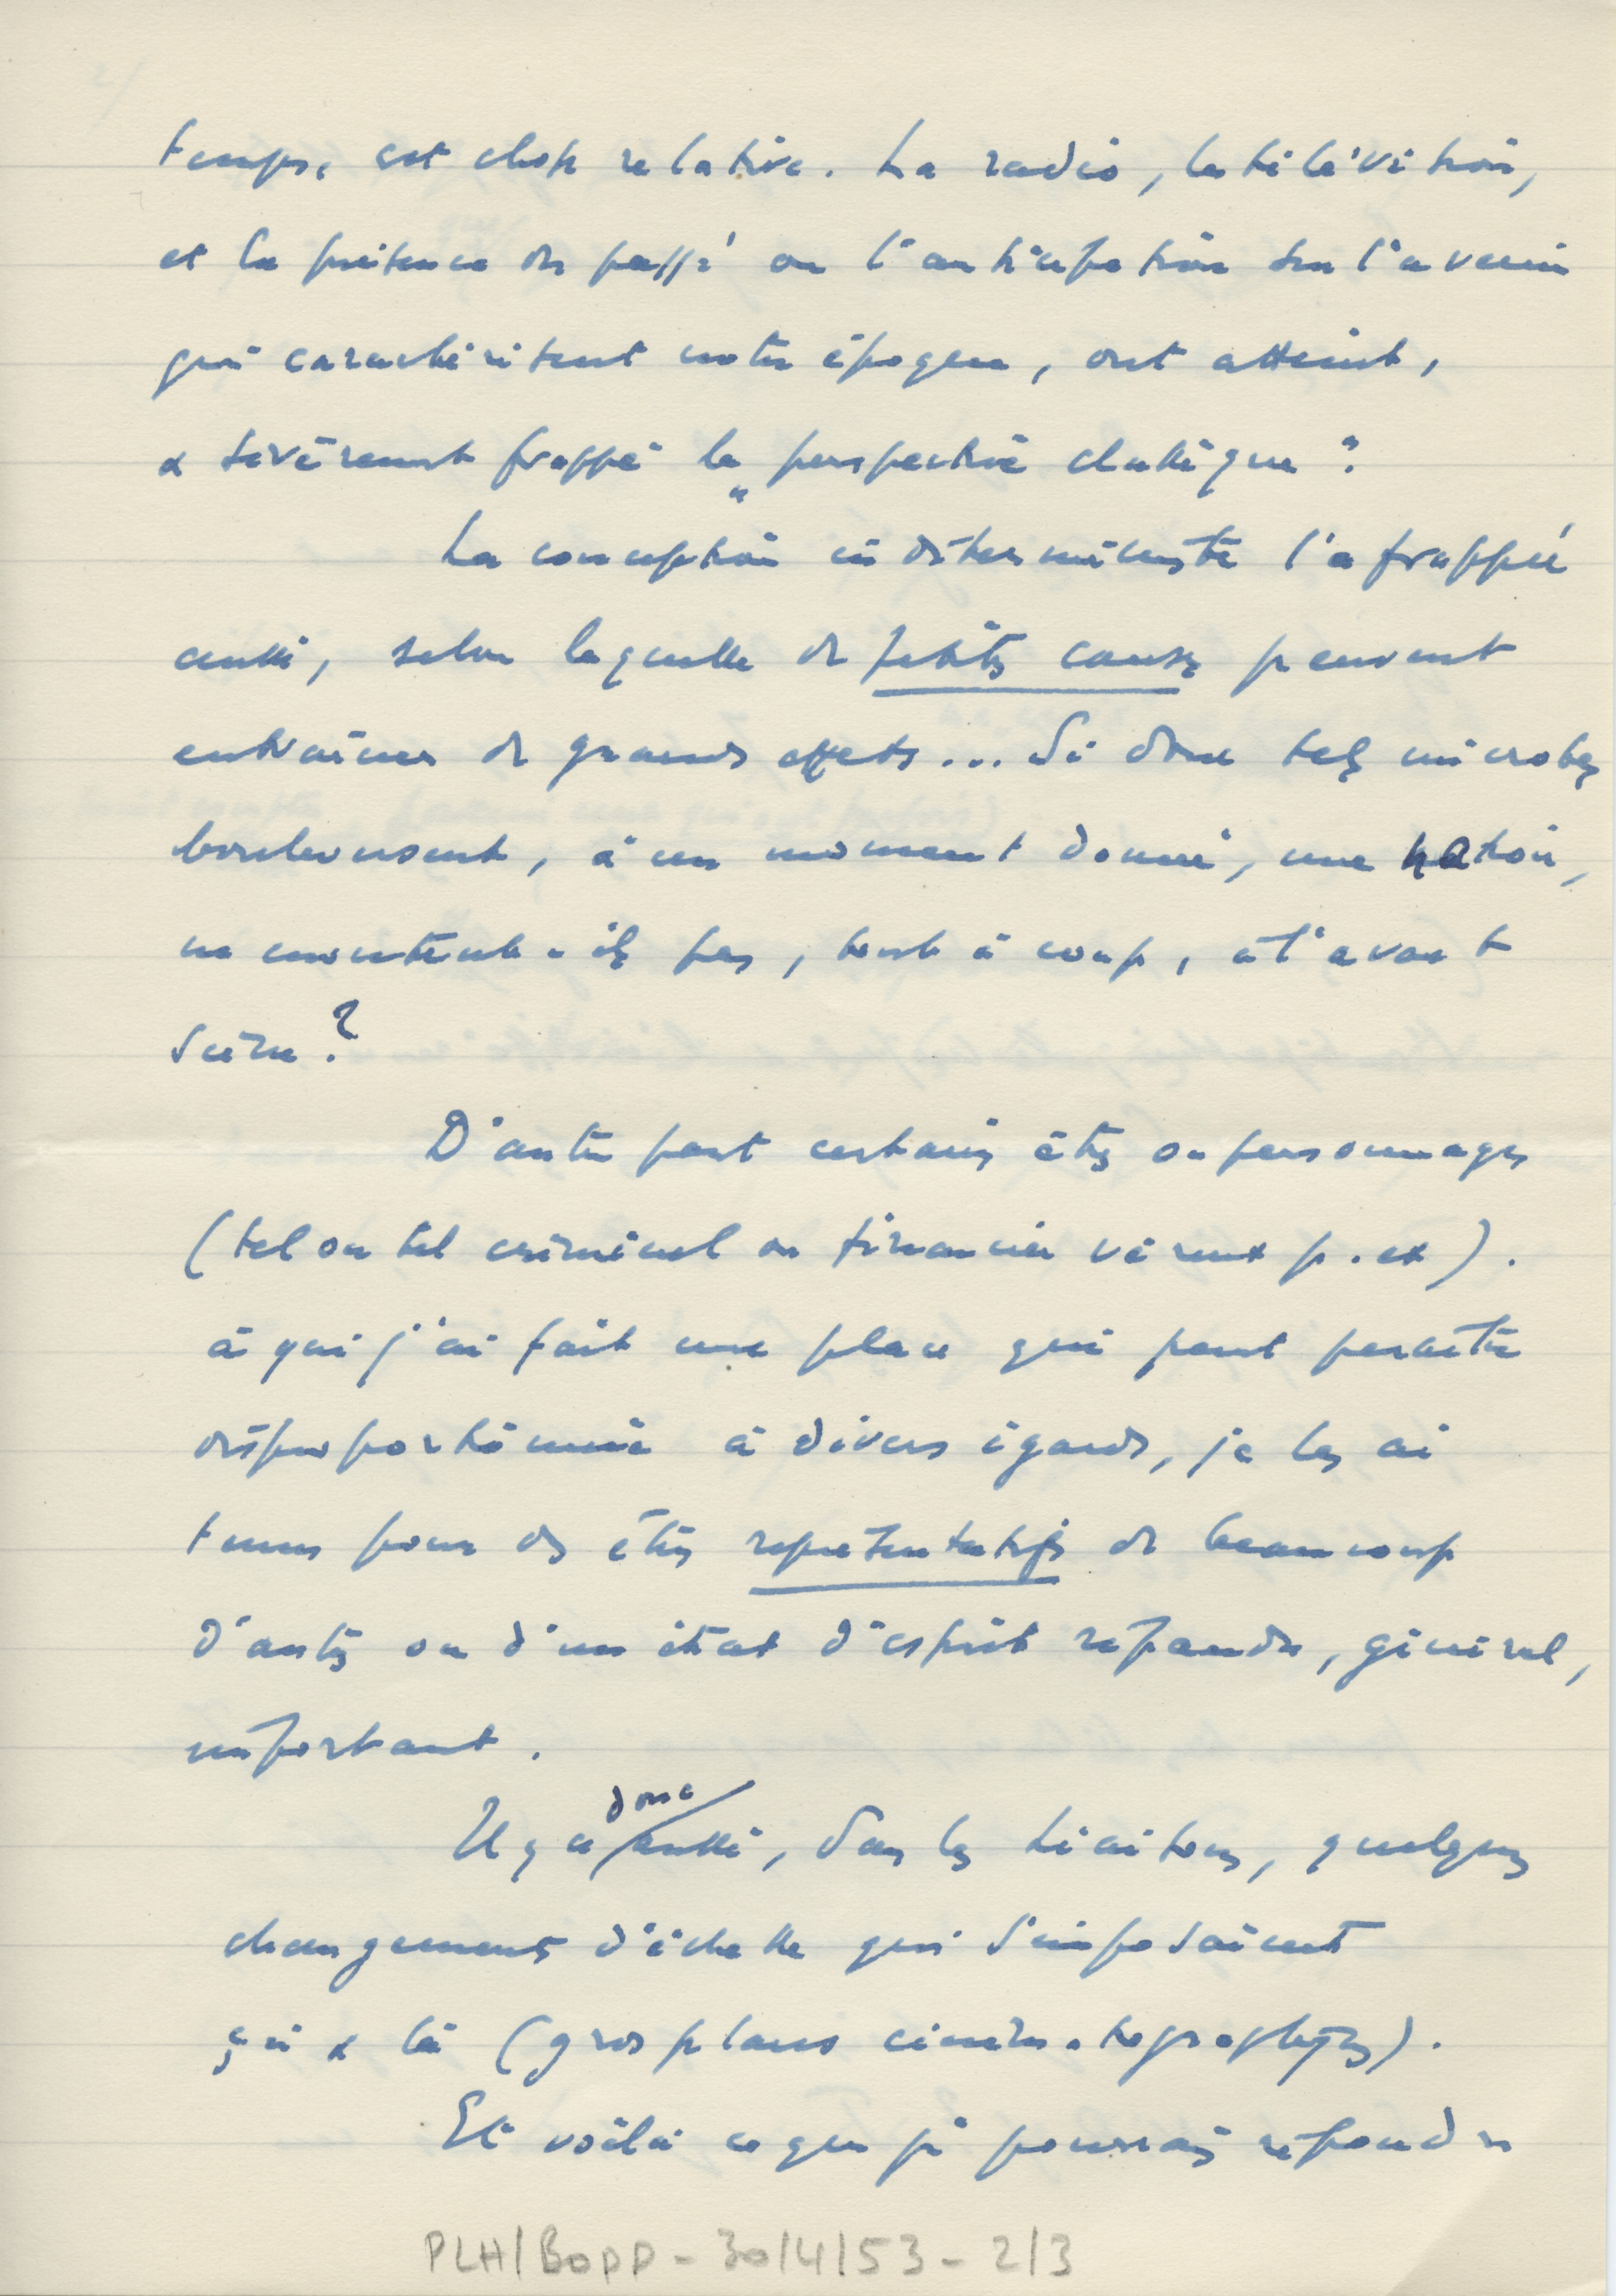 temps, est chose relative. La radio, la télévision,
et la présence du passé ou l'anticipation sur l'avenir
qui caractérisent notre époque, ont atteint,
& sévèrement frappé la "perspective classique"?
La conception indéterministe l'a frappée
aussi, selon laquelle de petites causes peuvent
entraîner de grands effets... Si donc tels microbes
bouleversent, à un moment donné, une nation,
ne montent-ils pas, tout à coup, à l'avant
scène?
D'autre part certains êtres ou personnages
(tel ou tel criminel ou financier véreux p. ex).
à qui j'ai fait une place qui peut paraître
disproportionnée à divers égards, je les ai
tenus pour des êtres représentatifs de beaucoup
d'autres ou d'un état d'esprit répandu, général,
important.
Il y a donc aussi, dans les liaisons, quelques
changements d'échelle qui s'imposaient
çà & là (gros plans cinématographiques).
Et voilà ce que je pourrais répondre
PLH/BOPP - 30/4/53 - 2/3